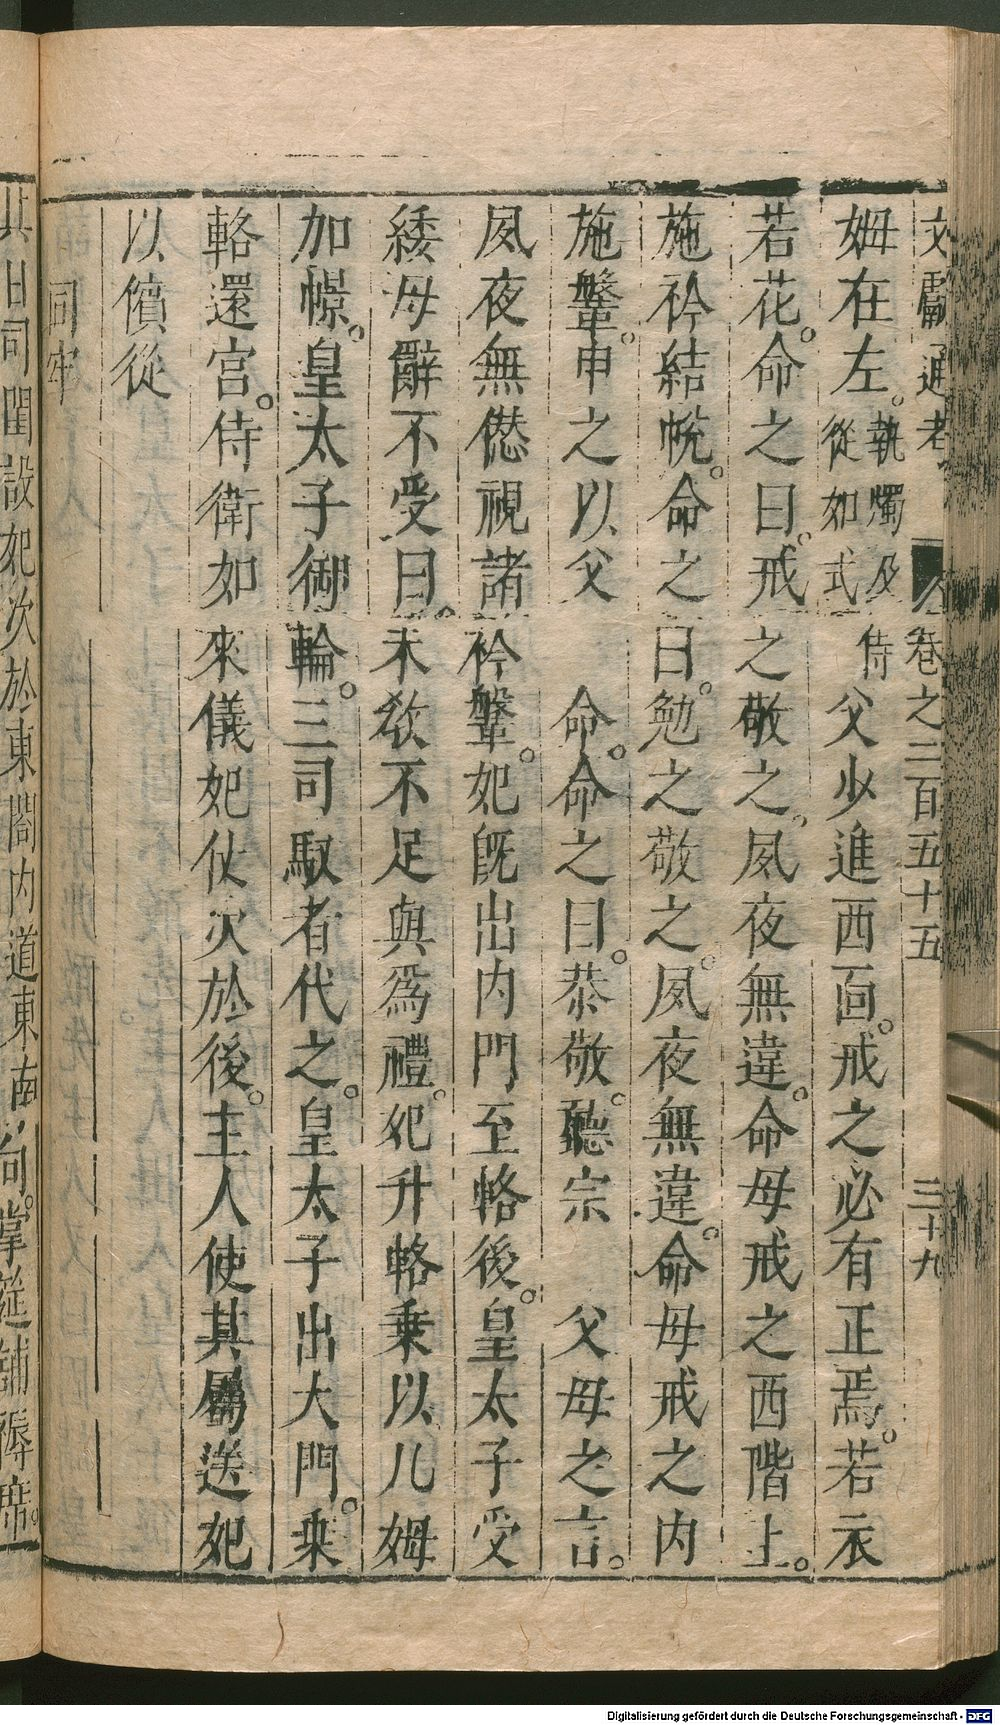 文獻通考 卷之二百五十五 三十九
姆在左。執燭及侍從如式父少進西面。戒之必有正焉。若衣
若花。命之曰。戒之敬之。夙夜無違。命母戒之西階上。
施衿結帨。命之曰。勉之敬之。夙夜無違。命母戒之內
施鞶。申之以父命。命之曰。恭敬。聽宗父母之言。
夙夜無愆視諸衿鞶。妃旣出內門至輅後。皇太子受
綏母辭不受曰。未敎不足與爲禮。妃升輅乗以几姆
加幜。皇太子御輪。三司馭者代之。皇太子出大門。乗
輅還宮。侍衛如來儀妃仗次於後。主人使其屬送妃
以儐從
同牢
其日司閨設妃次於東閤內道東南向。掌筵鋪褥席。
Digitalisierung gefördert durch die Deutsche Forschungsgemeinschaft - DFG